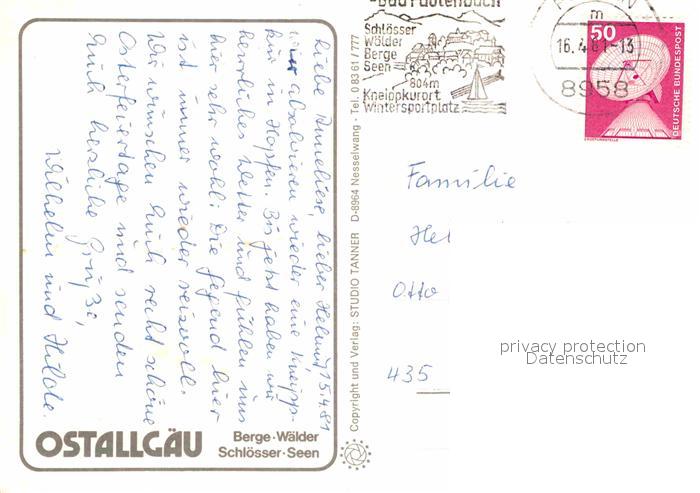 -Bad Faulenbach
Schlösser
Wälder
Berge
Seen
804m
Kneippkurort
Wintersportplatz
m
16.4.81-13
8958
50
DEUTSCHE BUNDESPOST
ERDEFUNKSTELLE
15.4.81
Liebe Anneliese, lieber Helmut,
wir absolvieren wieder eine Kneipp-
kur in Hopfen. Bis jetzt haben wir
herrliches Wetter und fühlen uns
hier sehr wohl. Die Gegend hier
ist immer wieder reizvoll.
Wir wünschen Euch recht schöne
Osterfeiertage und senden
Euch herzliche Grüße,
Wilhelm und Hilde.
OSTALLGÄU
Berge·Wälder
Schlösser·Seen
Copyright und Verlag: STUDIO TANNER D-8964 Nesselwang · Tel. 0 83 61 / 777
Familie
Hel
Otto
435
privacy protection
Datenschutz